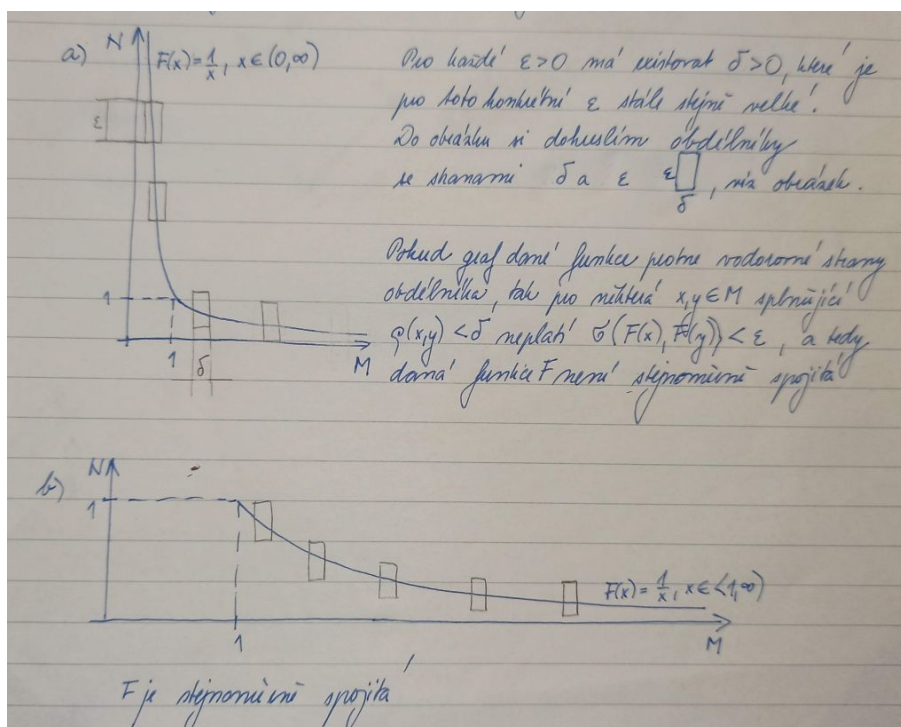 a) N F(x) = 1/x, x ∈ (0,∞)
ε
1
1
δ
M
Pro každé ε>0 má existovat δ>0, které je
pro toto konkrétní ε stále stejně velké.
Do obrázku si dokreslím obdélníky
se stranami δ a ε ε δ, viz obrázek.
Pokud graf dané funkce protne vodorovné strany
obdélníka, tak pro některá x,y ∈ M splňující
ρ(x,y) < δ neplatí σ(F(x), F(y)) < ε, a tedy
daná funkce F není stejnoměrně spojitá
b) N
1
F(x) = 1/x, x ∈ <1,∞)
1
M
F je stejnoměrně spojitá